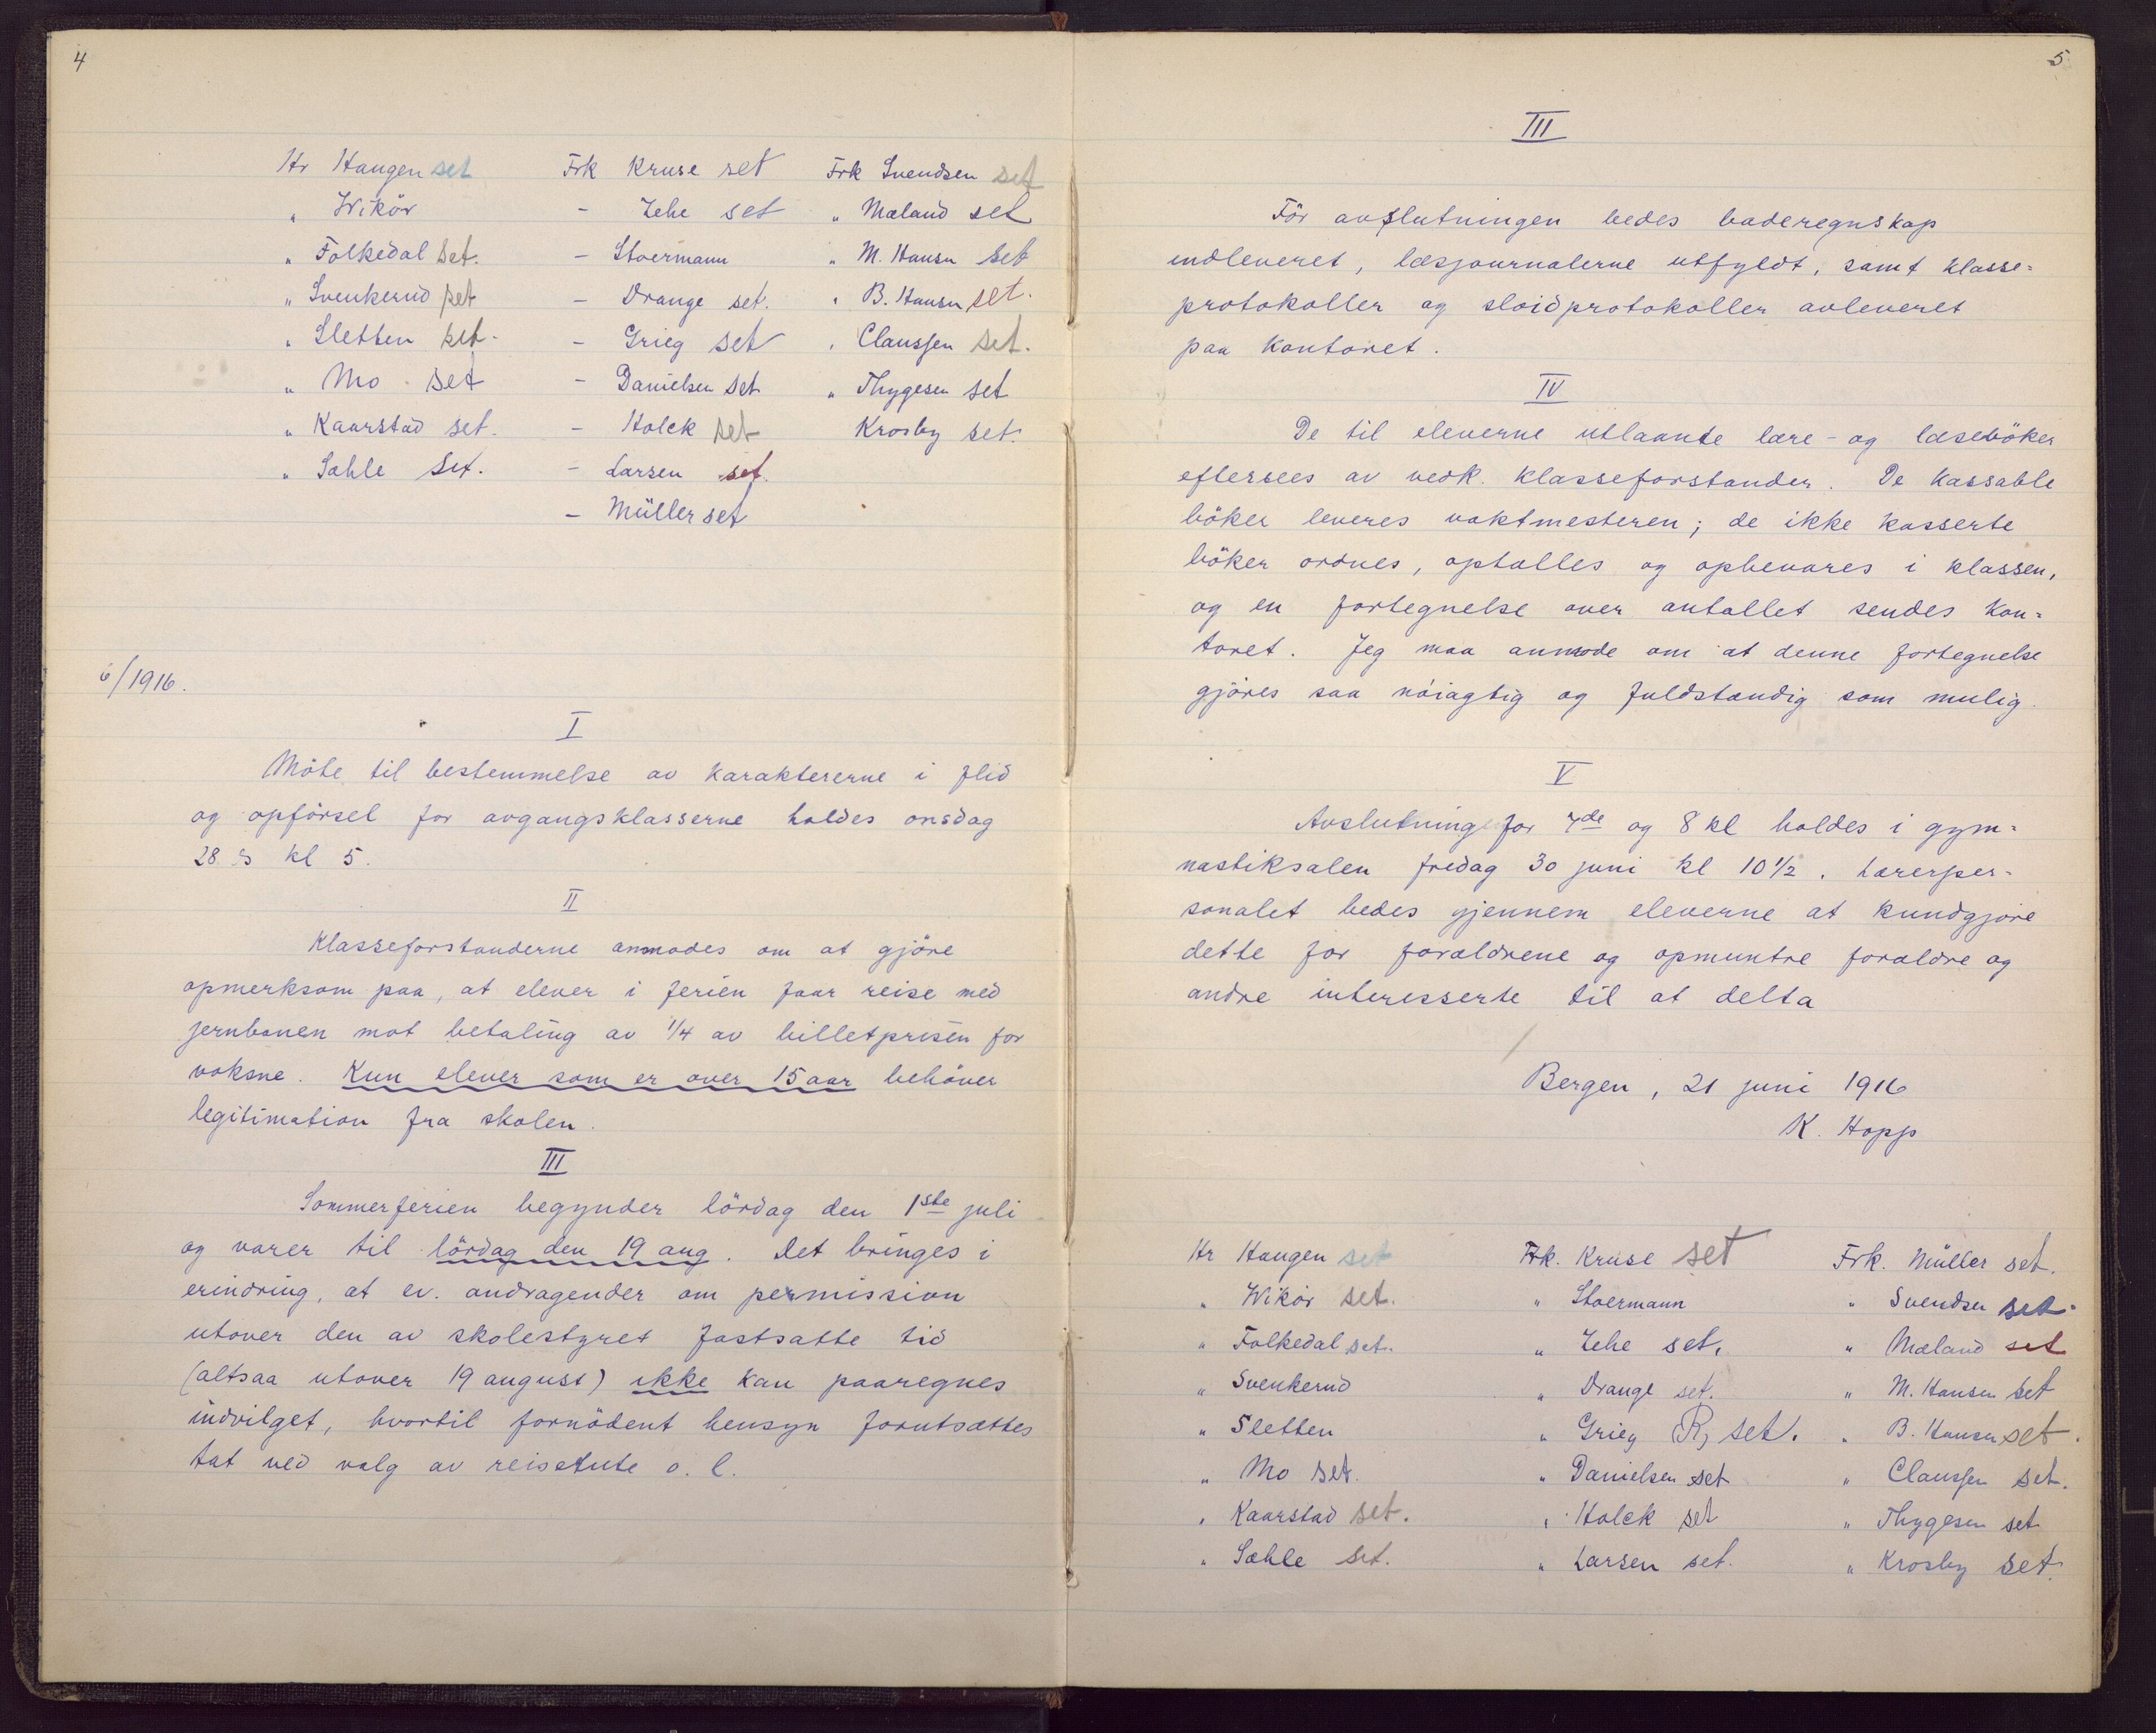 4
Hr Haugen set Frk Kruse set Frk Svendsen set
„ Wikör - Jehe set „ Mæland set
„ Folkedal set. - Stoermann „ M. Hansen set
„ Svenkerud set - Drange set. „ B. Hansen set.
„ Sletten set. - Grieg set „ Claussen set.
„ Mo set - Danielsen set „ Thygesen set
„ Kaarstad set. - Holck set Krosby set.
„ Sæhle set. - Larsen set.
- Müller set
6/1916.
I
Möte til bestemmelse av karaktererne i flid
og opförsel for avgangsklasserne holdes onsdag
28 ds kl 5.
II
Klasseforstanderne anmodes om at gjöre
opmerksom paa, at elever i ferien faar reise med
jernbanen mot betaling av 1/4 av billetprisen for
voksne. Kun elever som er over 15 aar behöver
legitimation fra skolen.
III
Sommerferien begynder lördag den 1ste juli
og varer til lördag den 19 aug. Det bringes i
erindring, at ev. andragender om permission
utover den av skolestyret fastsatte tid
(altsaa utover 19 august) ikke kan paaregnes
indvilget, hvortil fornödent hensyn forutsættes
tat ved valg av reiserute o. l.
5
III
För avslutningen bedes baderegnskap
indleveret, læsjournalerne utfyldt, samt klasse=
protokoller og sløidprotokoller avleveret
paa kontoret.
IV
De til eleverne utlaante lære- og læseböker
eftersees av vedk. klasseforstander. De kassable
böker leveres vaktmesteren; de ikke kasserte
böker ordnes, optælles og opbevares i klassen,
og en fortegnelse over antallet sendes kon=
toret. Jeg maa anmode om at denne fortegnelse
gjöres saa nöiagtig og fuldstændig som mulig.
V
Avslutning for 7de og 8 kl holdes i gym=
nastiksalen fredag 30 juni kl 10 1/2. Lærerper=
sonalet bedes gjennem eleverne at kundgjöre
dette for forældrene og opmuntre forældre og
andre interesserte til at delta
Bergen, 21 juni 1916
K. Hopp
Hr Haugen set Frk. Kruse set Frk. Müller set.
„ Wikör set. „ Stoermann „ Svendsen set.
„ Folkedal set. „ Jehe set. „ Mæland set
„ Svenkerud „ Drange set. „ M. Hansen set
„ Sletten „ Grieg R, set. „ B. Hansen set.
„ Mo set. „ Danielsen set „ Claussen set.
„ Kaarstad set. „ Holck set „ Thygesen set
„ Sæhle set. „ Larsen set. „ Krosby set.